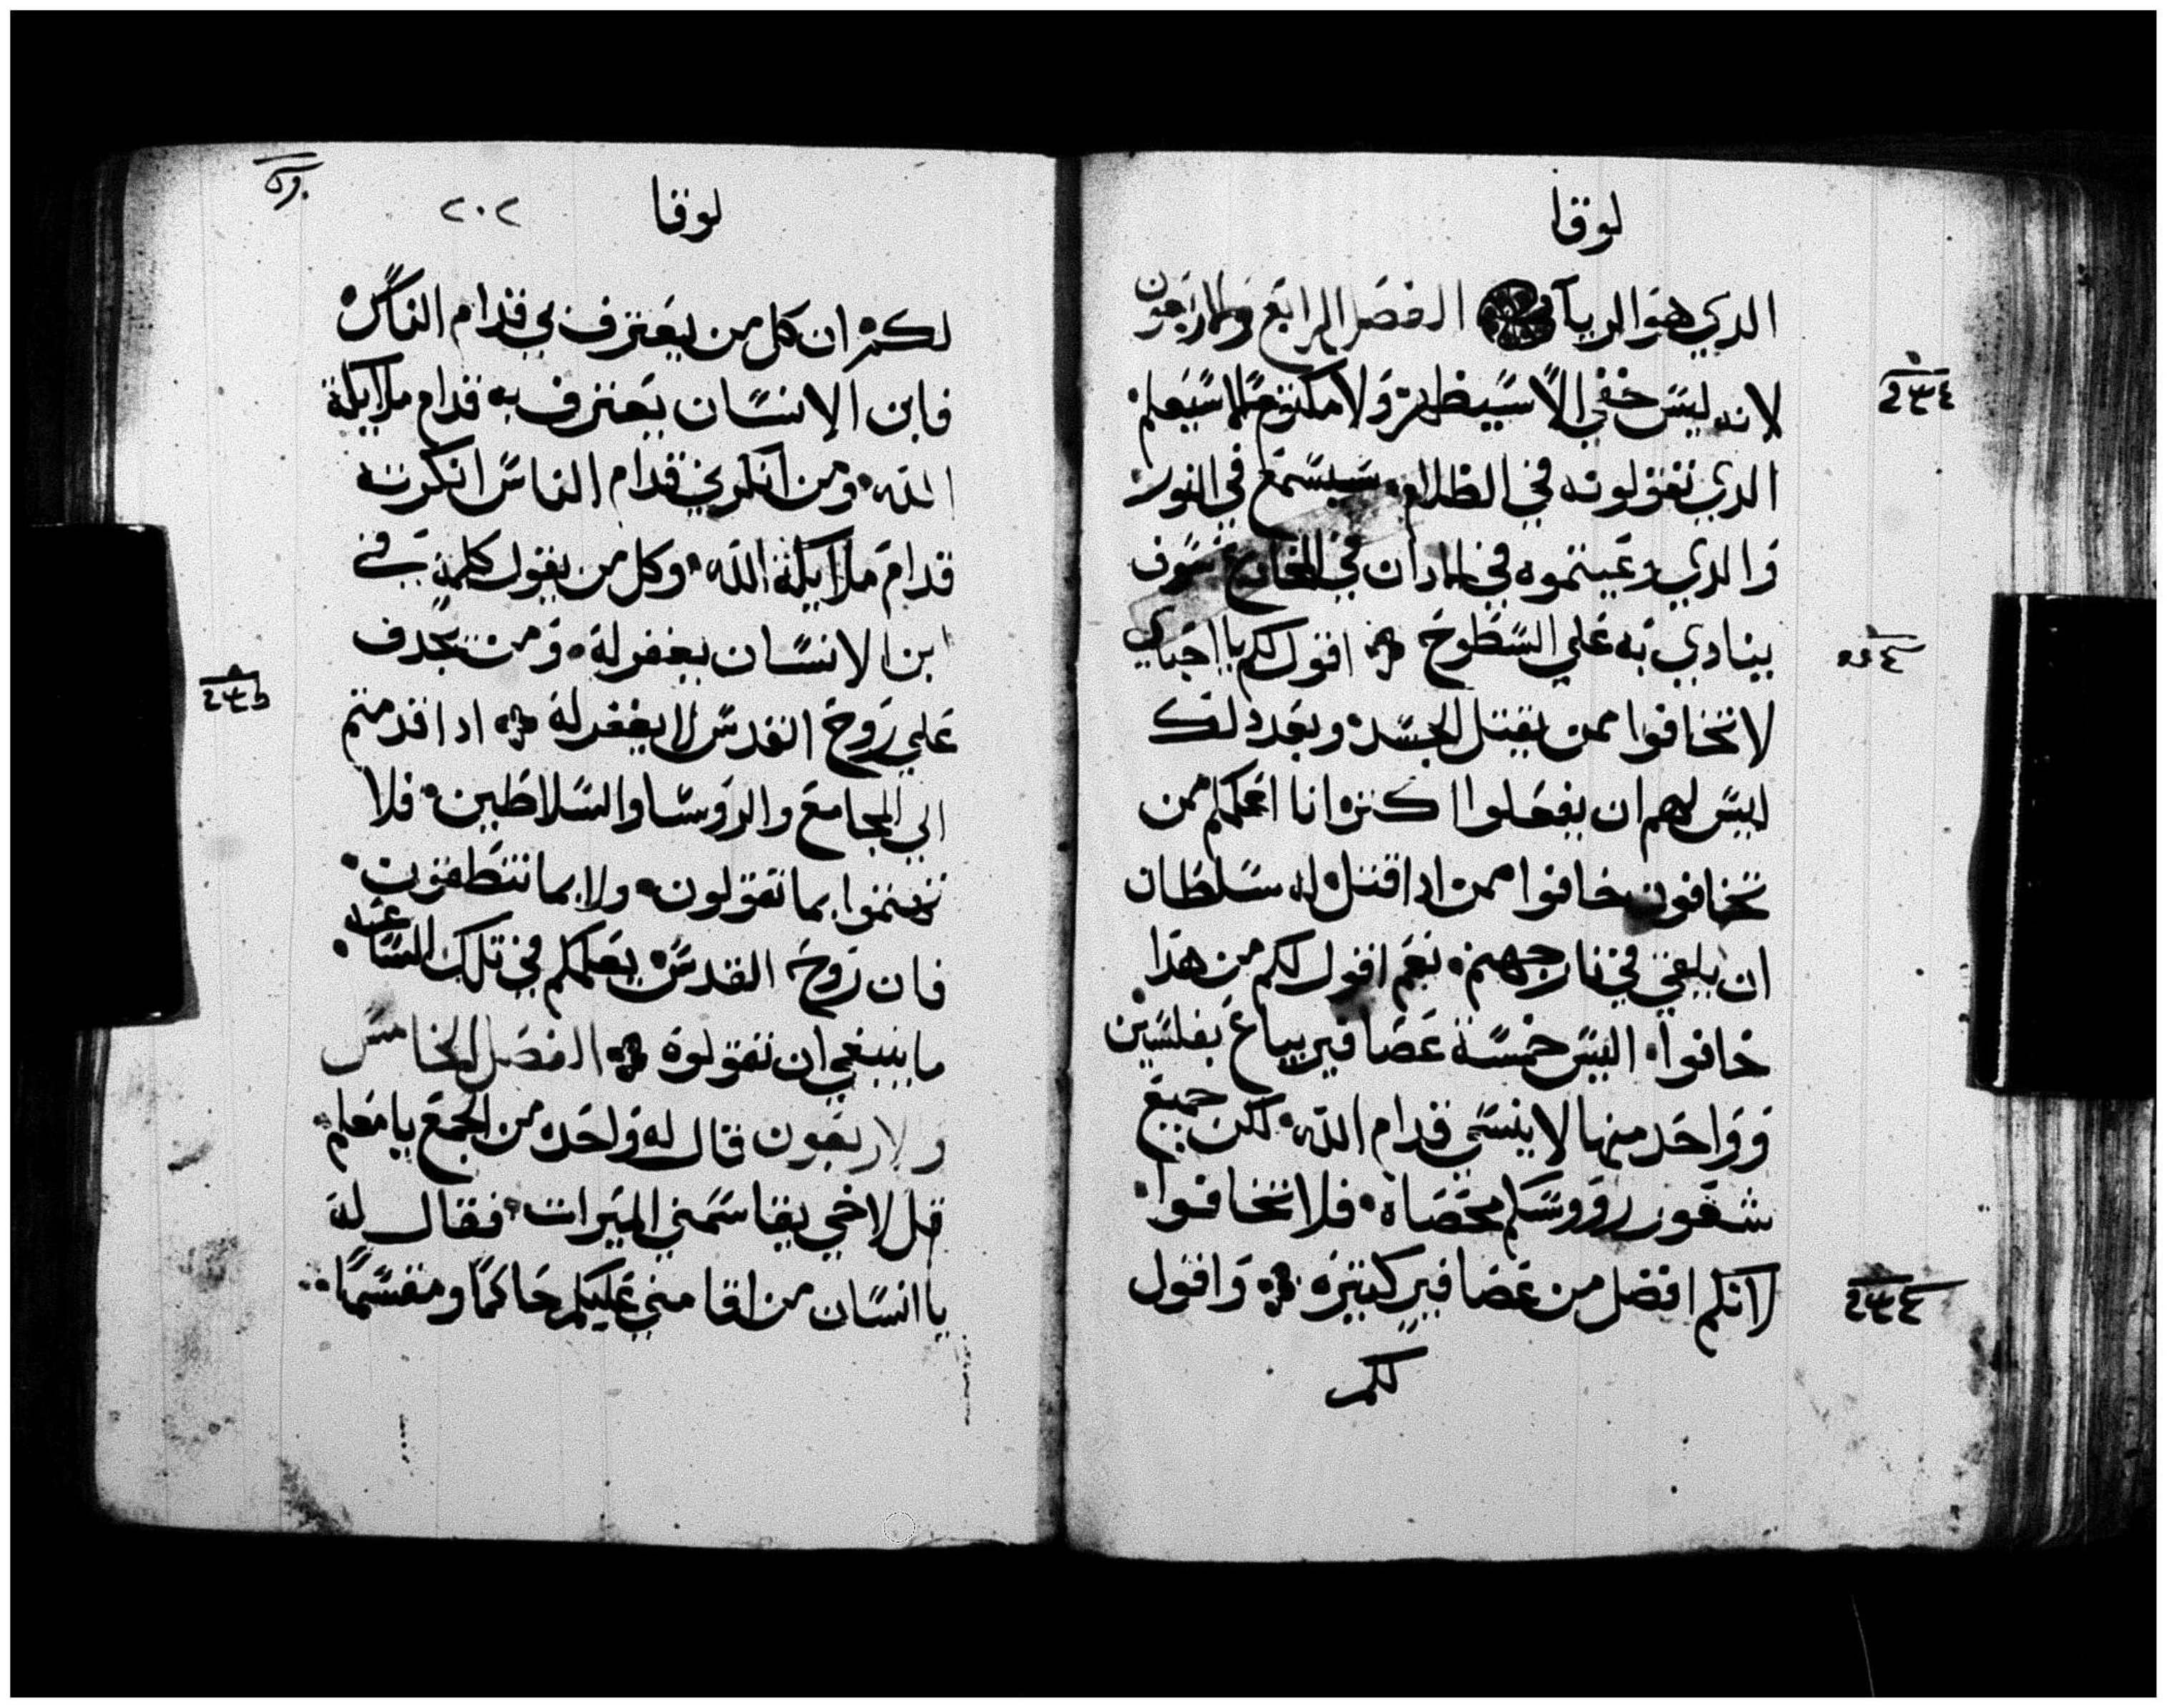 لوقا
الدي هو الريآ الفصل الرابع والاربعون
لانه ليس خفي الا سيظهر ولا مكتوم الا سيعلم
الدي تقولونه في الظلام سيسمع في النور
والدي وعيتموه في الادان في المخادع سوف
ينادي به علي السطوح اقول لكم يا احباي
لا تخافوا ممن يقتل الجسد وبعد دلك
ليس لهم ان يفعلوا اكتر انا اعلمكم ممن
تخافون خافوا ممن ادا قتل له سلطان
ان يلقي في نار جهنم نعم اقول لكم من هدا
خافوا اليس خمسة عصافير يباع بفلسين
وواحد منها لا ينسي قدام الله لكن جميع
شعور رووسكم محصاه فلا تخافوا
لانكم افضل من عصافير كتيره واقول
لكم
لوقا ٢٠٢
لكم ان كل من يعترف بي قدام الناس
فابن الانسان يعترف به قدام ملايكة
الله ومن انكرني قدام الناس انكرته
قدام ملايكة الله وكل من يقول كلمة في
ابن الانسان يغفر له ومن يجدف
علي روح القدس لا يغفر له ادا قدمتم
الي المجامع والروسا والسلاطين فلا
تهتموا بما تقولون ولا بما تنطقون
فان روح القدس يعلمكم في تلك الساعه
ما ينبغي ان تقولوه الفصل الخامس
والاربعون قال له واحد من الجمع يا معلم
قل لاخي يقاسمني الميرات فقال له
يا انسان من اقامني عليكم حاكما ومقسما